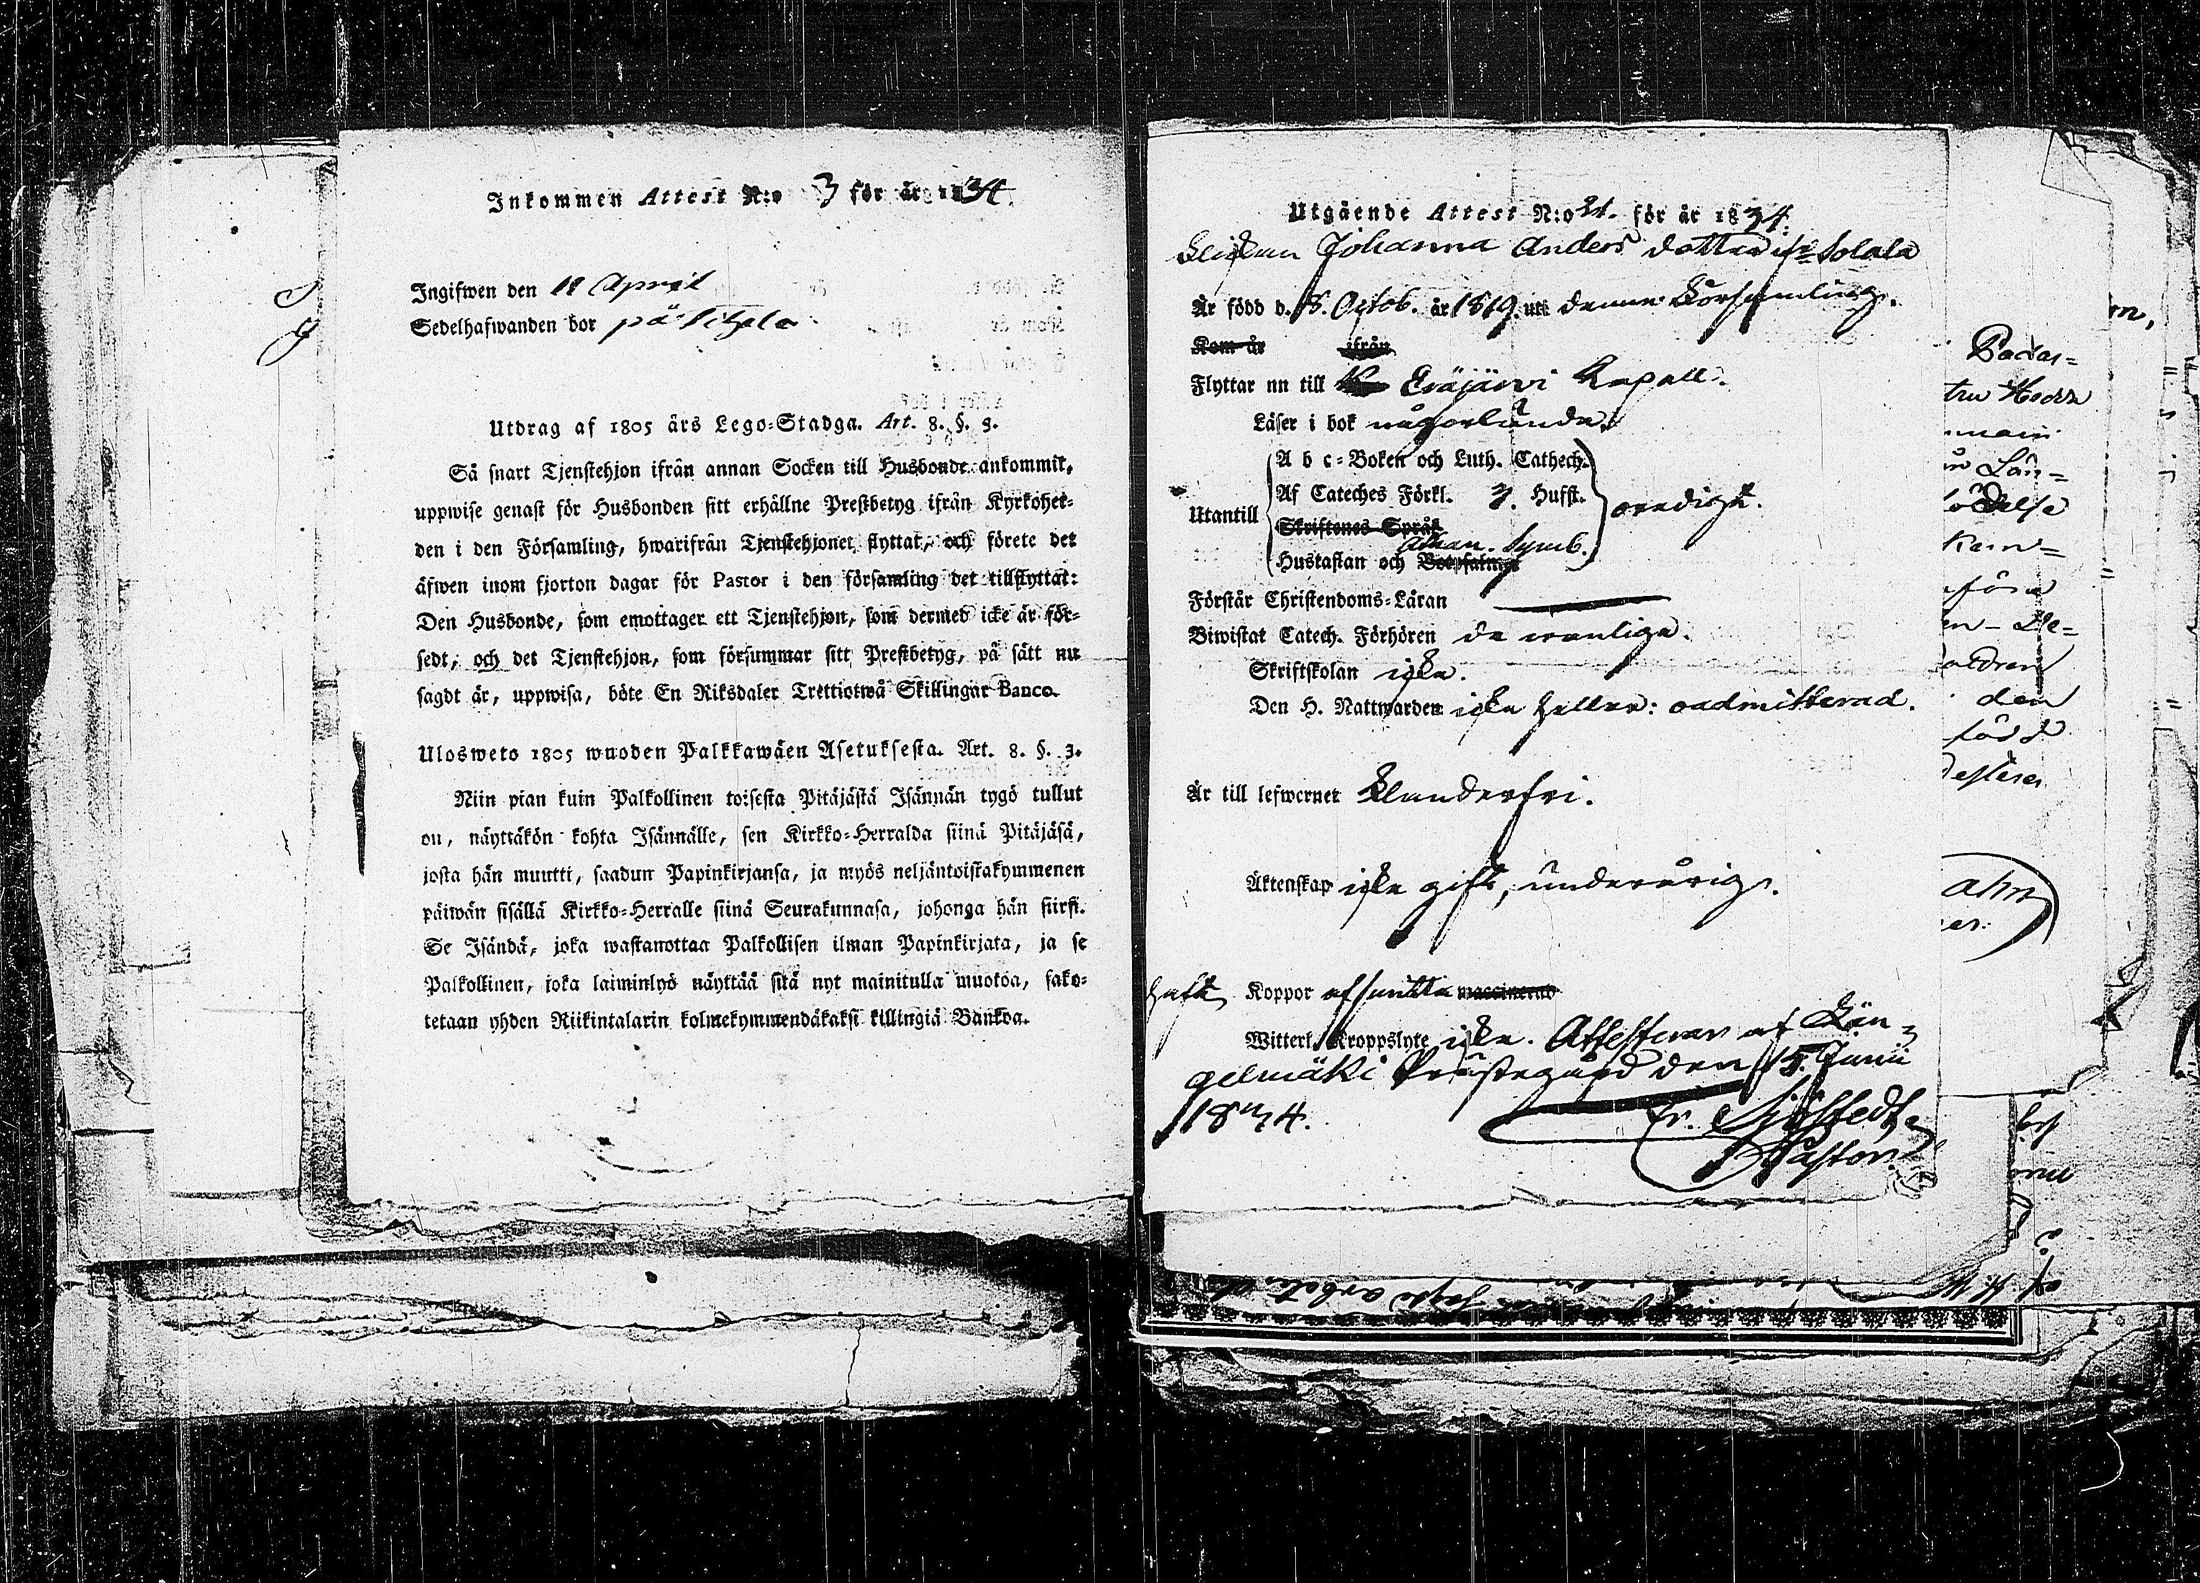 Inkommen Attest N:o 3 för år 1834.
Ingifwen den 11 April
Sedelhafwanden bor på
Utdrag af 1805 års Lego-Stadga. Art. 8. §. 3.
Så snart Tjenstehjon ifrån annan Socken till Husbonde ankommit,
uppwise genast för Husbonden sitt erhållne Prestbetyg ifrån Kyrkoher-
den i den Församling, hwarifrån Tjenstehjonet flyttat, och förete det
äfwen inom fjorton dagar för Pastor i den församling det tillflyttat:
Den Husbonde, som emottager ett Tjenstehjon, som dermed icke är för-
sedt, och det Tjenstehjon, som försummar sitt Prestbetyg, på sätt nu
sagdt är, uppwisa, böte En Riksdaler Trettiotwå Skillingar Banco.
Ulosweto 1805 wuoden Palkkawäen Asetuksesta. Art. 8. §. 3.
Niin pian kuin Palkollinen toisesta Pitäjästä Isännän tygö tullut
on, näyttäkön kohta Isännälle, sen Kirkko-Herralda siinä Pitäjäsä,
josta hän muutti, saadun Papinkirjansa, ja myös neljäntoistakymmenen
päiwän sisällä Kirkko-Herralle siinä Seurakunnasa, johonga hän siirsi.
Se Isändä, joka wastanottaa Palkollisen ilman Papinkirjata, ja se
Palkollinen, joka laiminlyö näyttää sitä nyt mainitulla muotoa, sako-
tetaan yhden Riikintalarin kolmekymmendäkaksi killingiä Bankoa.
Utgående Attest N:o 21. för år 1834.
Flickan Johanna Anders dotter ifr. Solala
Är född d. 18. Octob. år 1819. uti denna Församling.
Kom år ifrån
Flyttar nu till Eräjärvi Kapell.
Läser i bok någorlunda.
Utantill
A b c-Boken och Luth. Cathech.
Af Cateches Förkl. 3. Hufst.
Skriftenes Språk
Athan. Symb.
Hustaflan och Botpsalmer
ordigt.
Förstår Christendoms-Läran
Biwistat Catech. Förhören de vanliga.
Skriftskolan icke.
Den H. Nattwarden icke heller: oadmitterad.
Är till lefwernet klanderfri.
Äktenskap icke gift, underårig.
haft Koppor vaccinerad
Witterl. Kroppslyte icke. Attesterar af Län-
gelmäki Prästegård den 15. Junii
1834.
Fr. Sjöstedt
Pastor.
Padas-
Hedda
Län-
födelse
föra
den
född